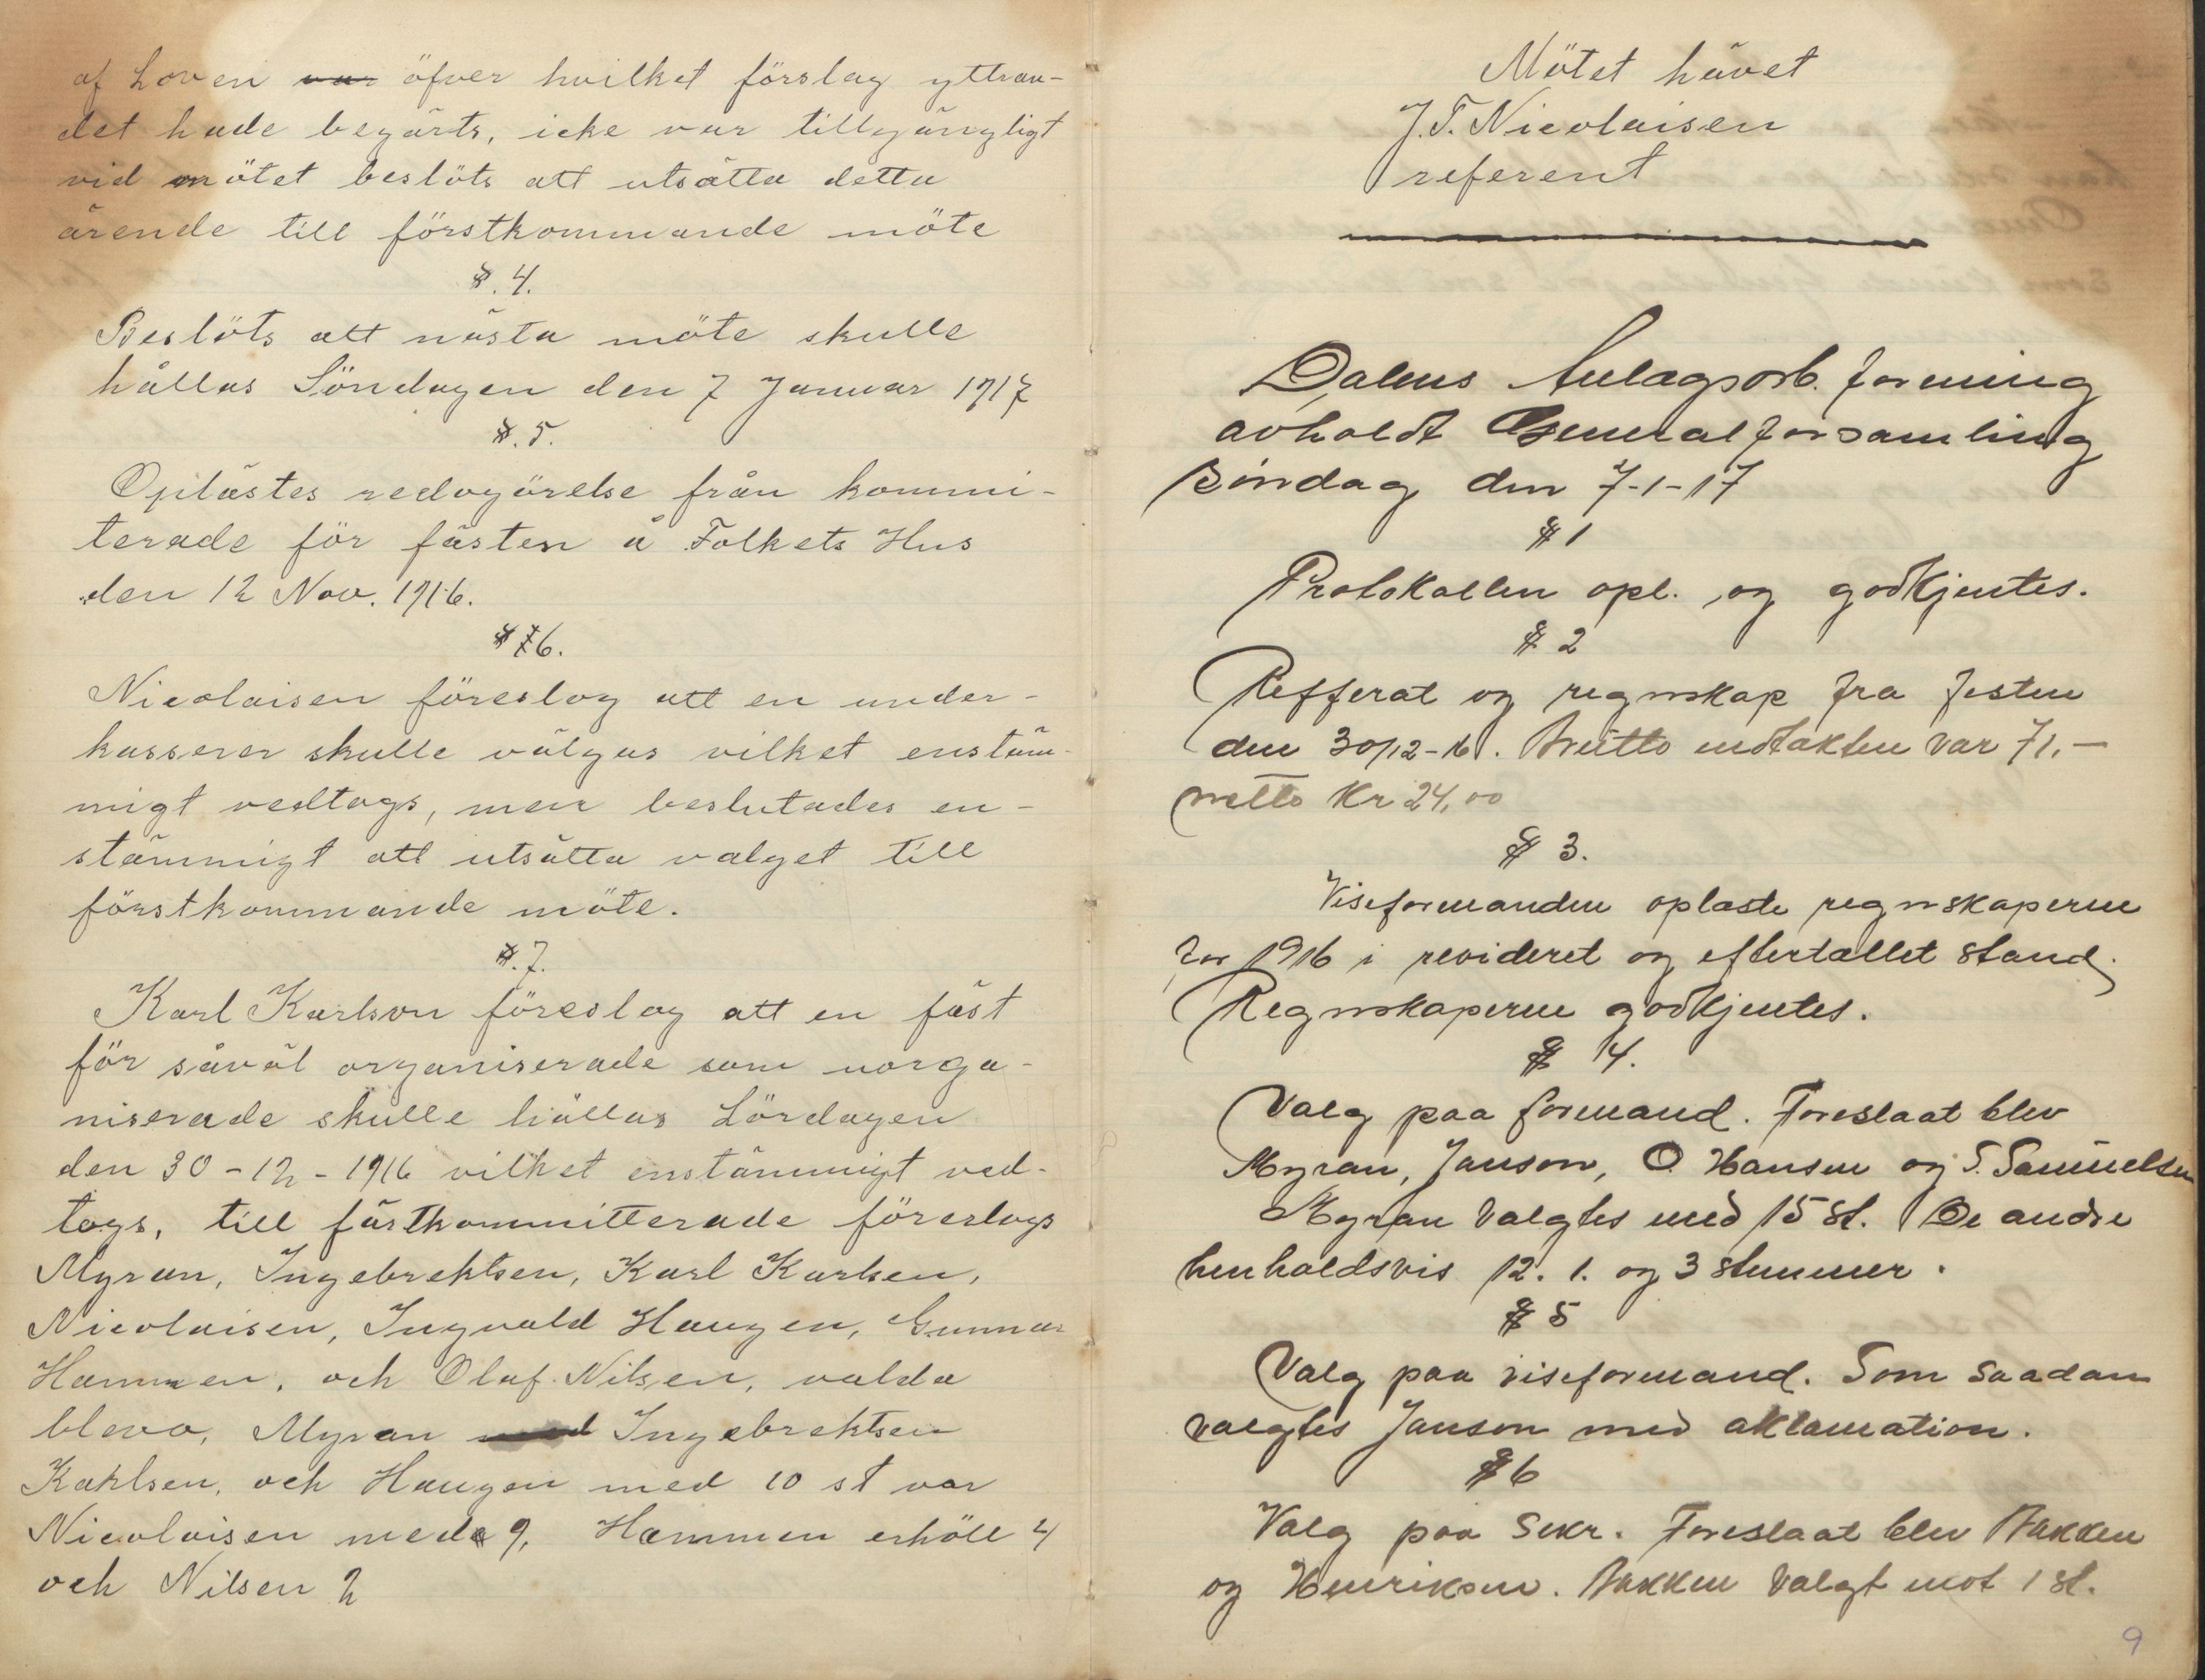 af Loven var öfver hvilket förslag yttran-
det hade begärts, icke var tillgängligt
vid mötet beslöts att utsätta detta
ärende till förstkommande möte
§. 4.
Beslöts att nästa möte skulle
hållas Söndagen den 7 Januar 1917
§. 5.
Oplästes redogörelse från kommi-
terade för fästen å Folkets Hus
den 12 Nov. 1916.
§ 76.
Nicolaisen föreslog att en under-
kasserer skulle välgas vilket enstäm-
migt vedtogs, men beslutades en-
stämmigt att utsätta valget till
förstkommande möte.
§. 7.
Karl Karlson föreslog att en fäst
för såväl organiserade som uorga-
niserade skulle hållas Lördagen
den 30-12-1916 vilket enstämmigt ved-
togs, till fästkommitterade föreslogs
Myran, Ingebrektsen, Karl Karlsen,
Nicolaisen, Ingvald Haugen, Gunnar
Hammen, och Olaf Nilsen, valda
blevo, Myran med Ingebrektsen
Kahlsen, och Haugen med 10 st var
Nicolaisen med 9, Hammen erhöll 4
och Nilsen 2
Mötet hävet
J. T. Nicolaisen
referent
Dalens Anlægsarb. forening
avholdt Generalforsamling
Söndag den 7-1-17
§ 1
Protokollen opl. og godkjentes.
§ 2
Refferat og regnskap fra festen
den 30/12-16. Brutto indtækten var 71.-
netto Kr 24,00
§ 3.
Viseformanden oplæste regnskaperne
for 1916 i revideret og eftertællet stand.
Regnskaperne godkjentes.
§ 4.
Valg paa formand. Foreslaat blev
Myran, Janson, O. Hansen og S. Samuelsen
Myran valgtes med 15 st. De andre
henholdsvis 12. 1. og 3 stemmer.
§ 5
Valg paa viseformand. Som saadan
valgtes Janson med aklamation.
§ 6
Valg paa Sekr. Foreslaat blev Bakken
og Henriksen. Bakken valgt mot 1 st.
9